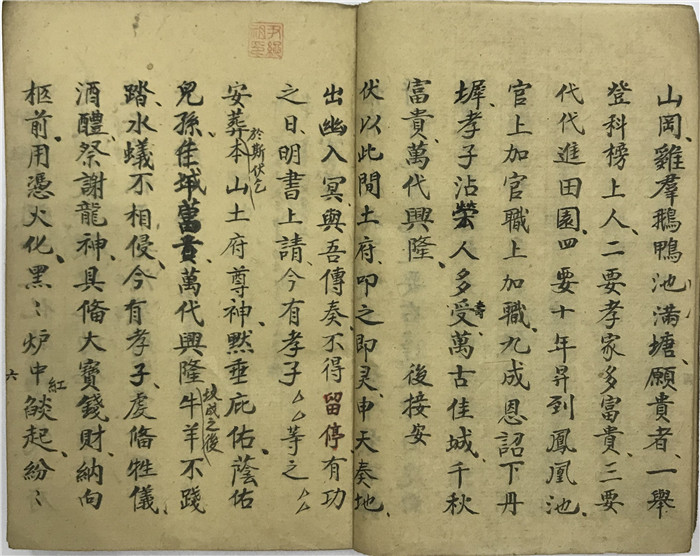 山岡、雞羣鵝鴨池滿塘、願貴者、一舉
登科榜上人、二要孝家多富貴、三要
代代進田園、四要十年昇到鳳凰池、
官上加官職上加職、九成恩詔下丹
墀、孝子沾榮人多受壽萬古佳城、千秋
富貴、萬代興隆、 後接安
伏以此間土府、叩之即灵、申天奏地、
出幽入冥、與吾傳奏、不得留停、有功
之日、明書上請、今有孝子厶厶等之厶厶
安葬於斯伏乞本山土府尊神、默垂庇佑、蔭佑
兒孫佳城萬貴、萬代興隆坟成之後牛羊不踐
踏、水蟻不相侵、今有孝子、虔俻牲儀、
酒醴、祭謝龍神、具俻大寶錢財、納向
柩前、用憑火化、黑〻炉中紅燄起、紛〻
六